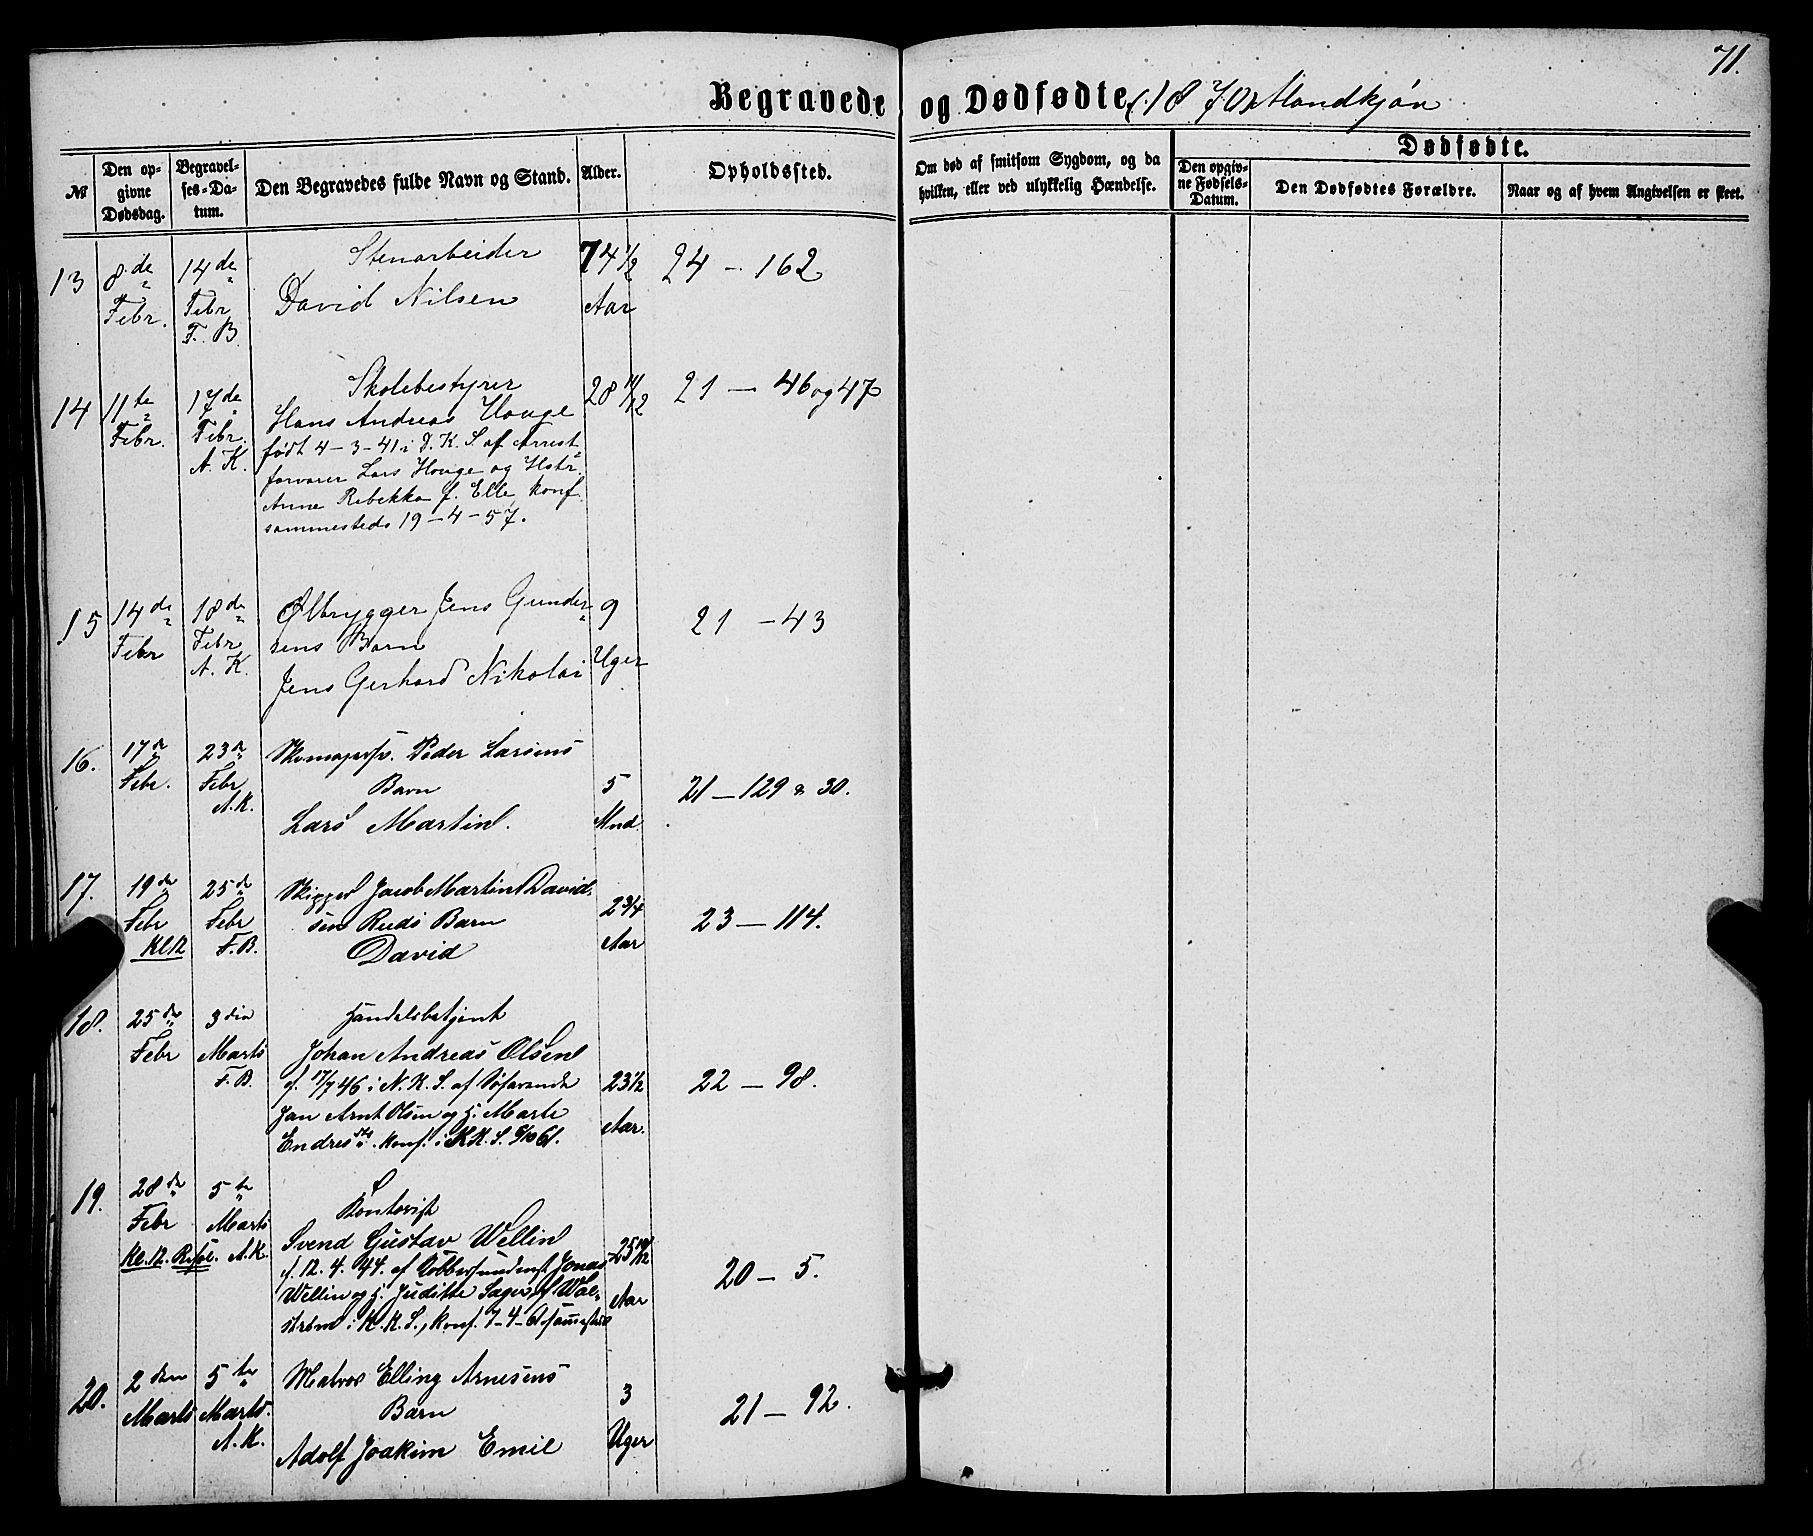 71.
Begravede og Dødfødte (1870) Mandkjøn
Dødfødte.
№
Den opgivne Dødsdag.
Begravelses-Datum.
Den Begravedes fulde Navn og Stand.
Alder.
Opholdssted.
Om død af smitsom Sygdom, og da hvilken, eller ved ulykkelig Hændelse.
Den opgivne Fødsels-Datum.
Den Dødfødtes Forældre.
Naar og af hvem Angivelsen er skeet.
13
8de Febr.
14de Febr F. B
Stenarbeider
David Nilsen
74 1/2 Aar
24 - 162
14
11te Febr.
17de Febr. A. K.
Skolebestyrer
Hans Andreas Houge
født 4-3-41 i D. K. S. af Arrest-
forvarer Lars Houge og Hstr.
Anne Rebekka f. Elle, konf.
sammesteds 19-4-57.
28 11/12
21 - 46 og 47
15
14de Febr
18de Febr A. K.
Ølbrygger Jens Gunder-
sens Barn
Jens Gerhard Nikolai
9 Uger
21 - 43
16.
17de Febr.
23de Febr A.K.
Peder Larsens
Barn
Lars Martin.
5 Mnd.
21 - 129 & 30.
17.
19de Febr
25de Febr F.B.
Skipper Jacob Martin David-
sen Ruds Barn
David
2 3/4 Aar
23 - 114.
18.
25de Febr
3die Marts F.B.
Handelsbetjent
Johan Andreas Olsen
f. 17/7 46 i N. K. S. af Søfarende
Jan Arnt Olsen og H. Marte
Endresdtr. konf. i KK. S. 6/10 61.
23 1/2 Aar.
22 - 98.
19.
28de Febr
5te Marts A.K.
Kontorist
Svend Gustav Wellin
f. 12. 4. 44. af Jonas
Wellin og H. Juditte f. Wal-
strøm i K.K.S., konf. 7-4-61 sammesteds
25 10/12 Aar
20 - 5.
20.
2den Marts
5te Marts. A.K.
Matros Elling Arnesens
Barn
Adolf Joakim Emil
3 Uger
21 - 92.